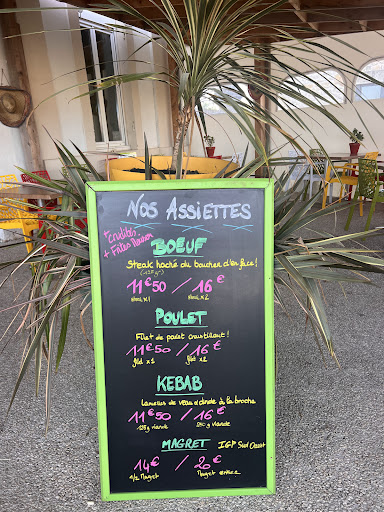 Nos Assiettes
+ Crudités
+ Frites Maison
BOEUF
Steak haché du boucher d'en face !
(125 gr)
11€50 / 16€
x1 x2
POULET
Filet de poulet croustillant !
11€50 / 16€
filet x1 filet x2
KEBAB
Lamelles de veau & dinde à la broche
11€50 / 16€
125g viande 250g viande
MAGRET IGP Sud Ouest
14€ / 20€
1/2 Magret Magret entier